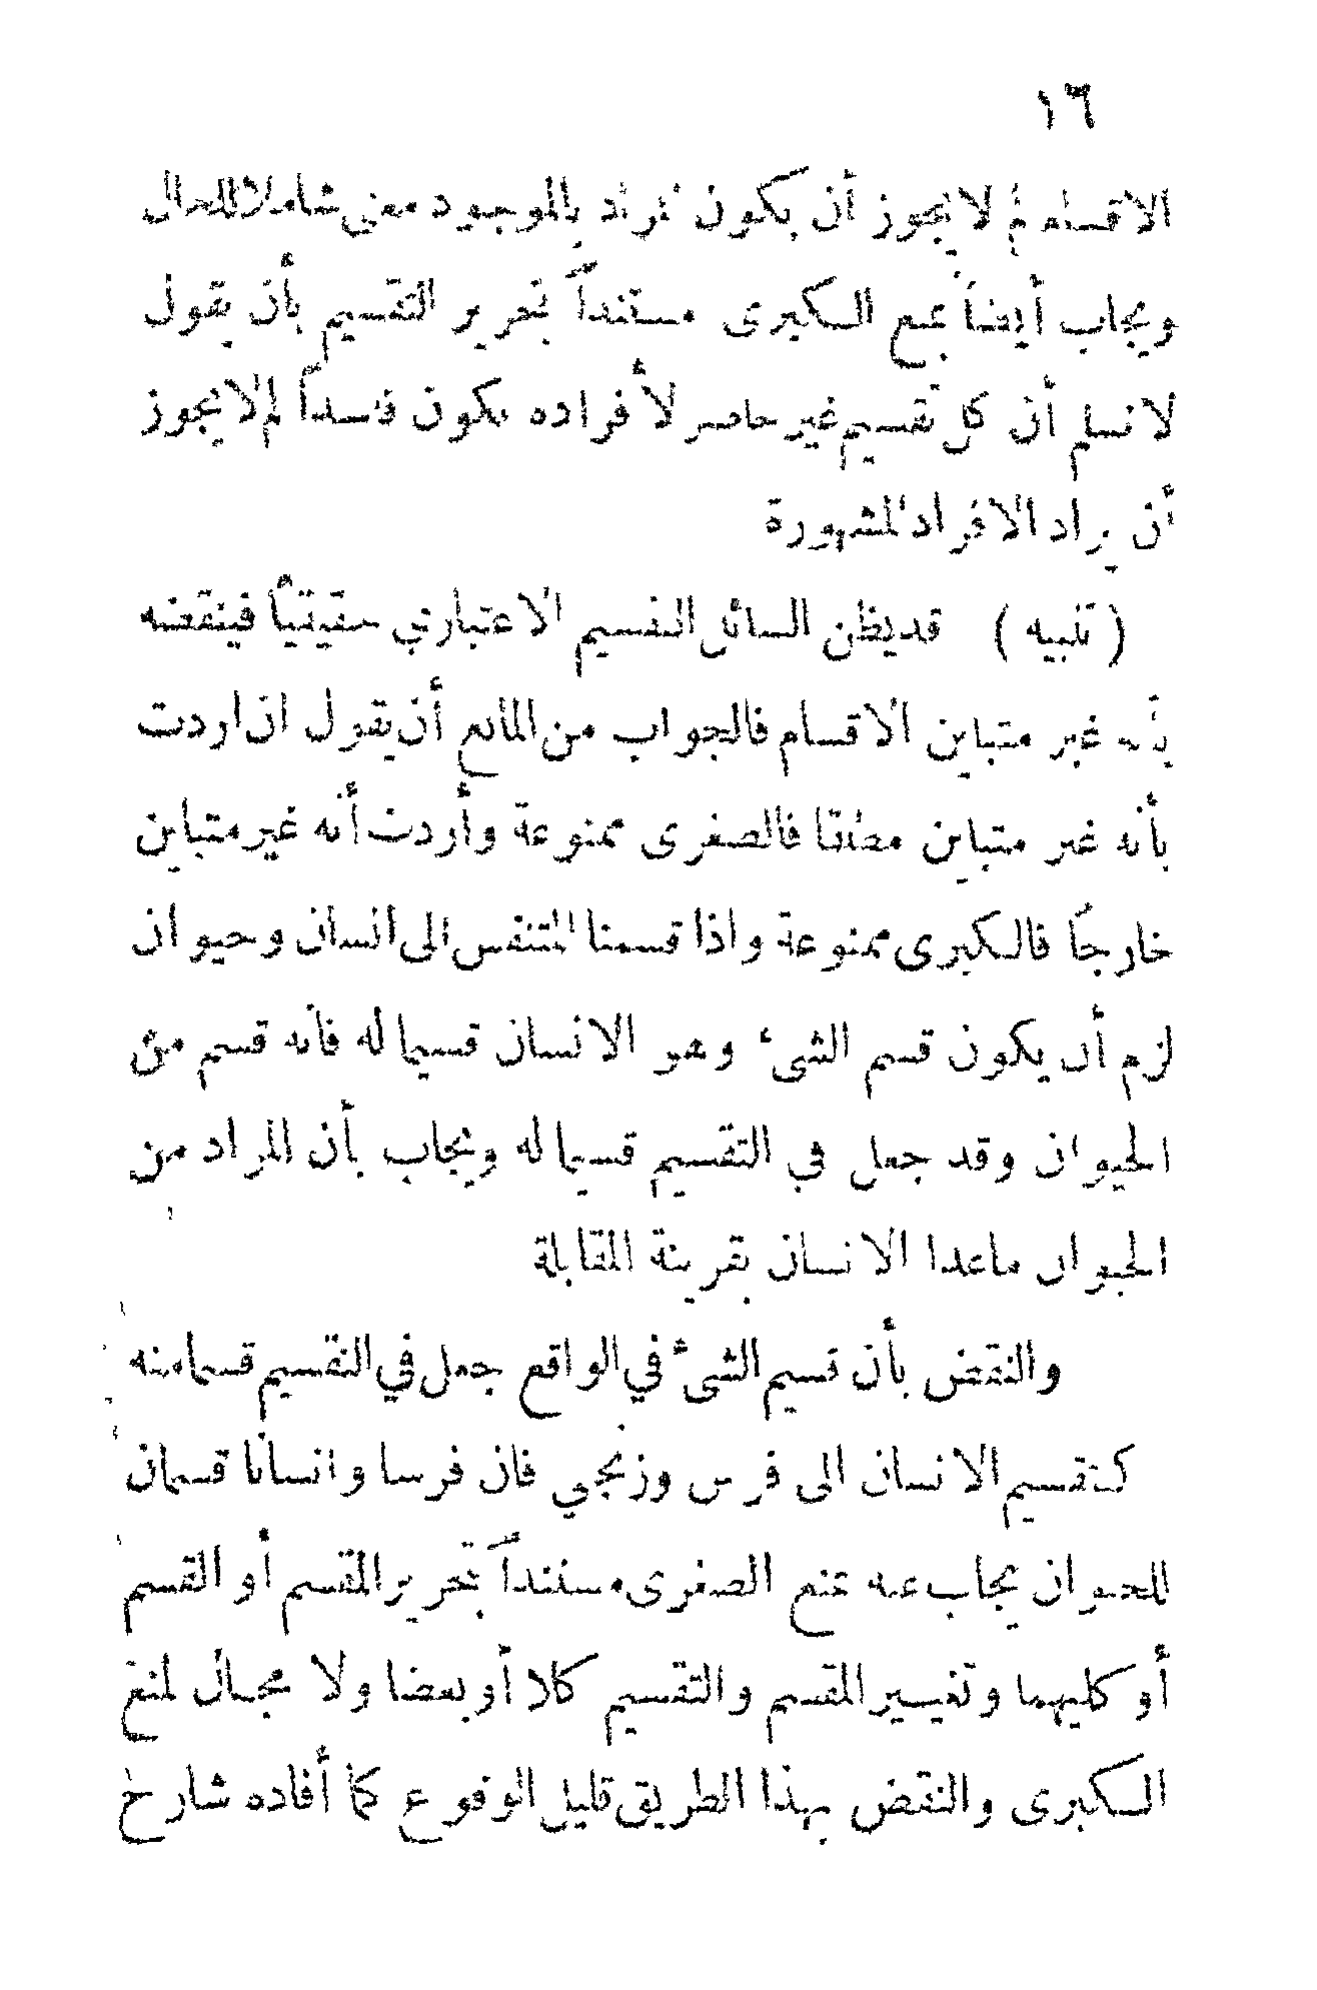 ١٦
الاقسام لم لا يجوز أن يكون المراد بالموجود معنى شاملا للحال
ويجاب أيضاً بمنع الكبرى مستنداً بتحرير التقسيم بأن يقول
لا نسلم أن كل تقسيم غير حاصر لأفراده يكون فاسداً لم لا يجوز
أن يراد الافراد المشهورة
( تنبيه ) قد يظن السائل التقسيم الاعتباري حقيقياً فينقضه
بأنه غير متباين الاقسام فالجواب من المانع أن يقول ان اردت
بأنه غير متباين مطلقا فالصغرى ممنوعة وأردت أنه غير متباين
خارجاً فالكبرى ممنوعة واذا قسمنا المتنفس الى انسان وحيوان
لزم أن يكون قسم الشىء وهو الانسان قسيما له فانه قسم من
الحيوان وقد جعل في التقسيم قسيما له ويجاب بأن المراد من
الحيوان ماعدا الانسان بقرينة المقابلة
والنقض بأن قسيم الشىء في الواقع جعل في التقسيم قسما منه
كتقسيم الانسان الى فرس وزنجي فان فرسا وانسانا قسمان
للحيوان يجاب عنه بمنع الصغرى مستنداً بتحرير المقسم أو القسم
أو كليهما وتفسير المقسم والتقسيم كلا أو بعضا ولا مجال لمنع
الكبرى والنقض بهذا الطريق قليل الوقوع كما أفاده شارح